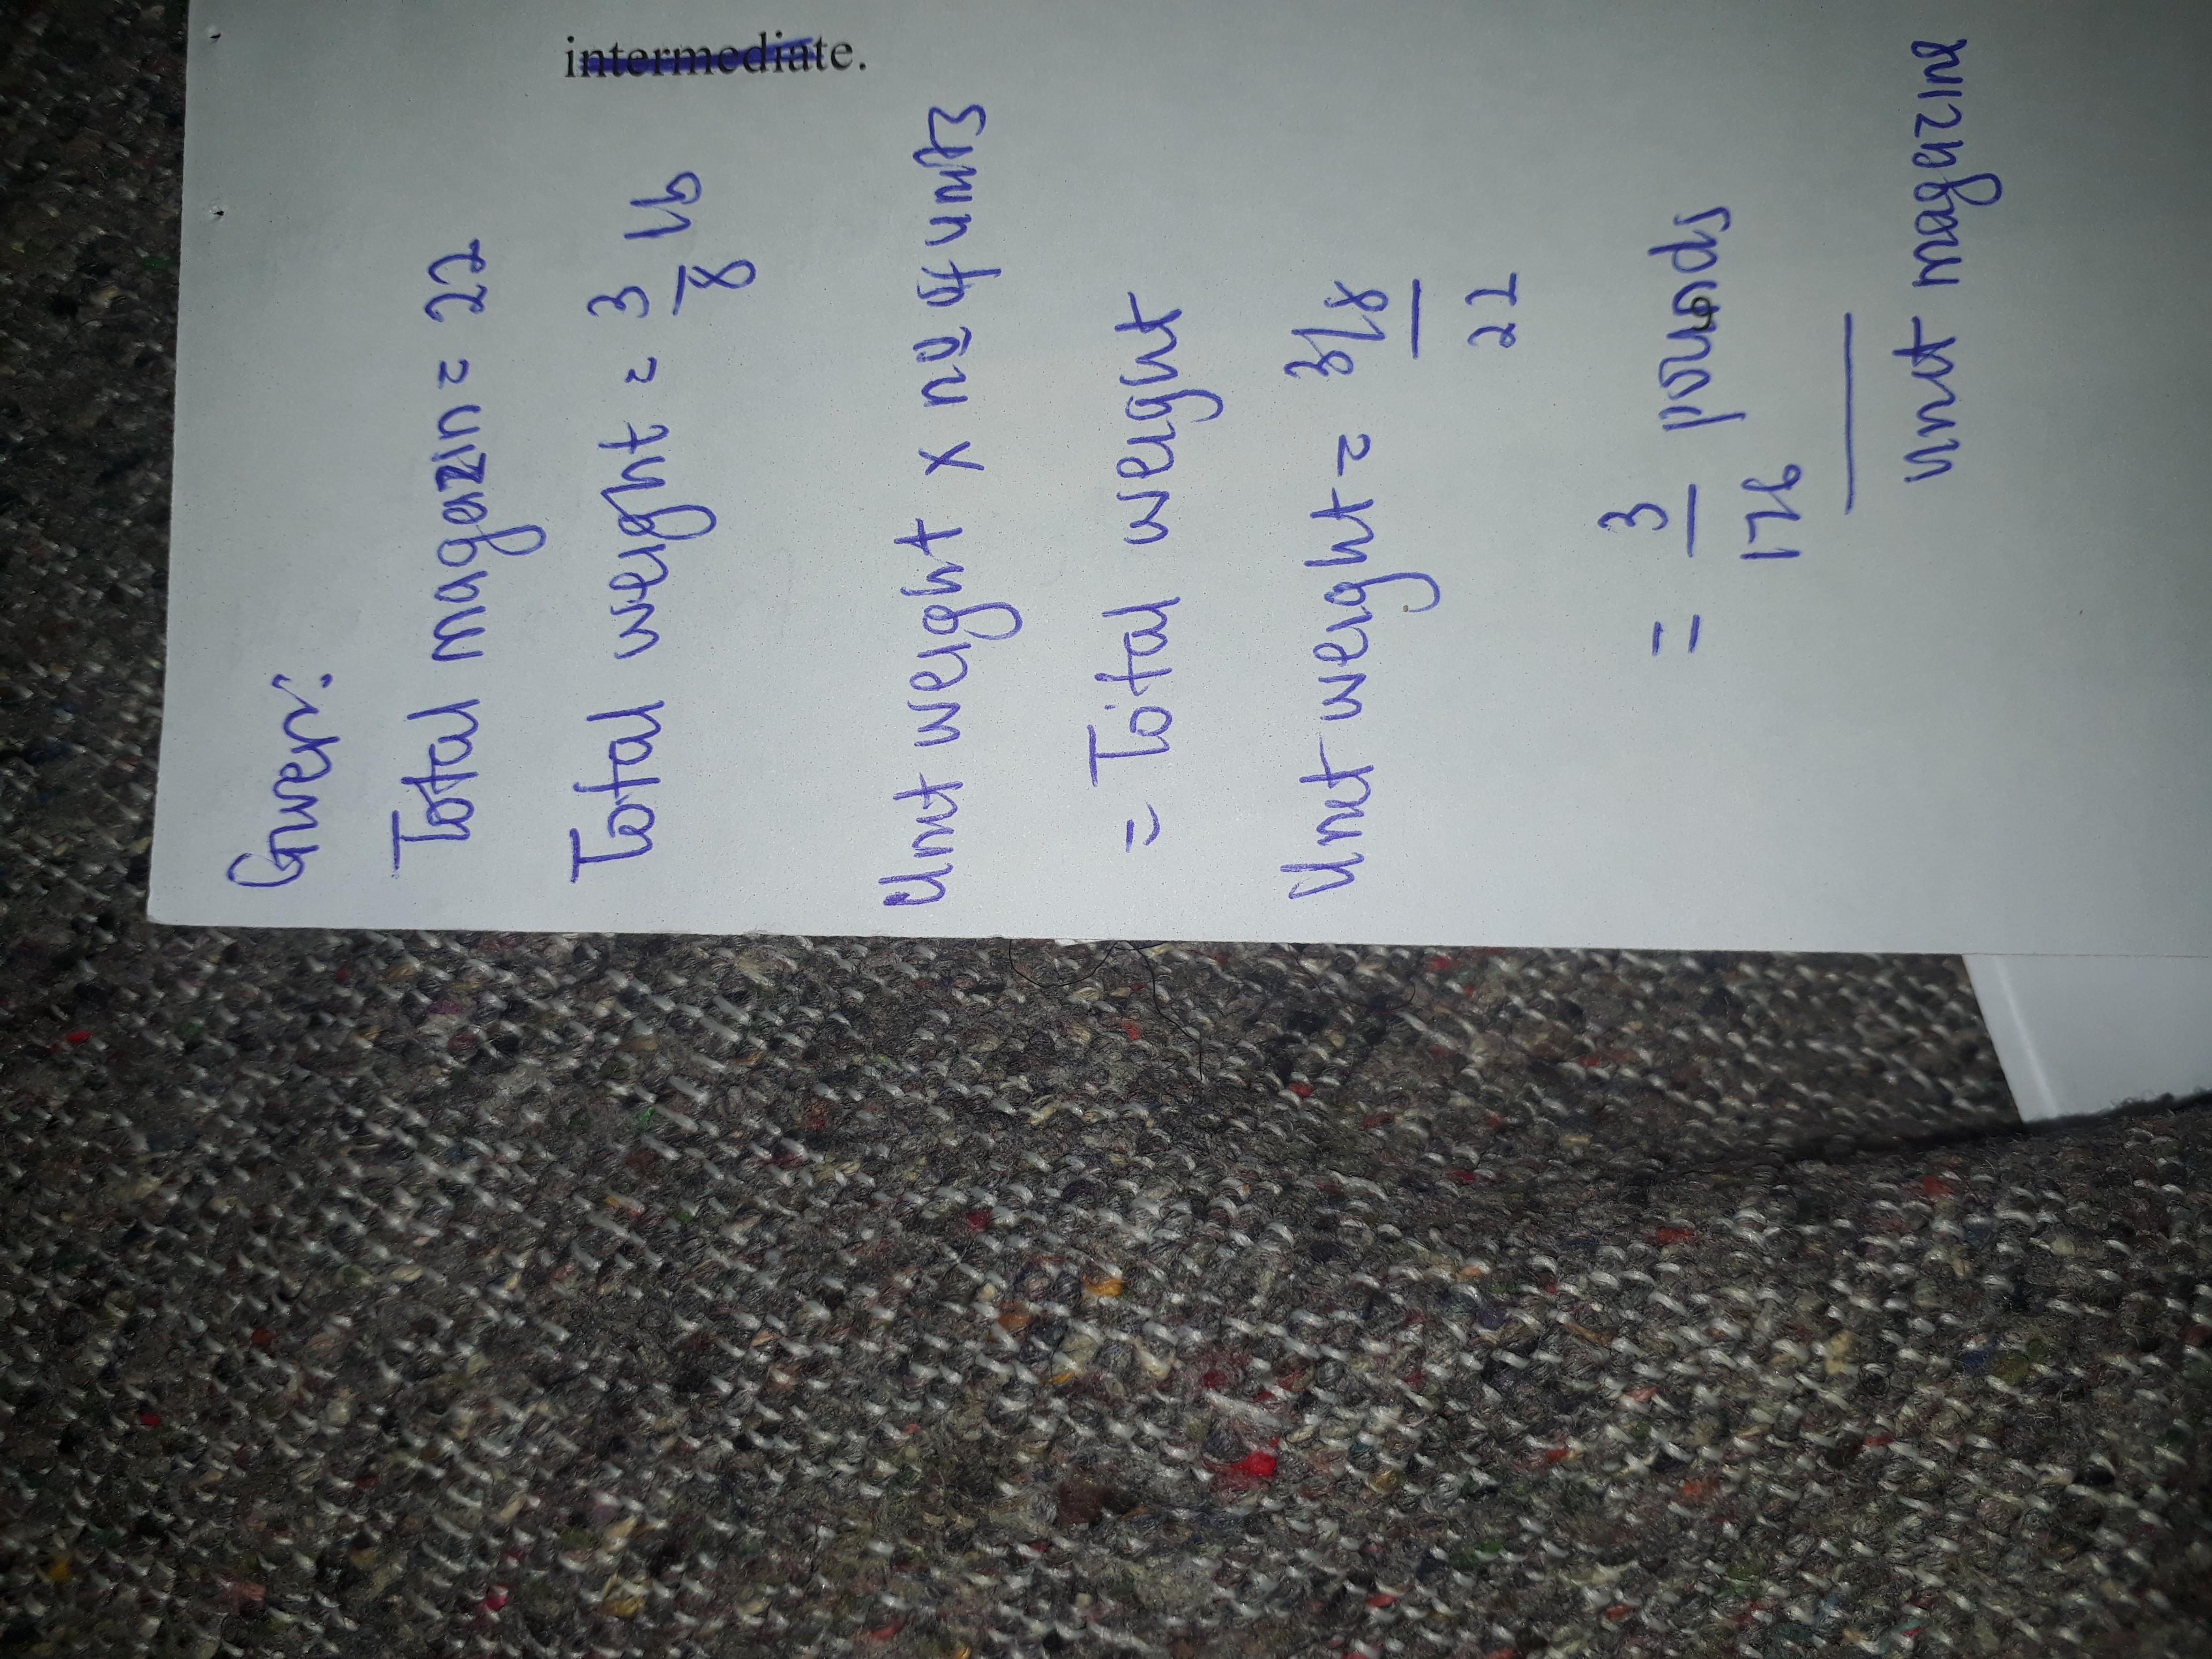 intermediate.
Given:
Total magazin = 22
Total weight = 3/8 lb
Unit weight x no of units
= Total weight
Unit weight = 3/8 / 22
= 3/176 pounds
unit magazine